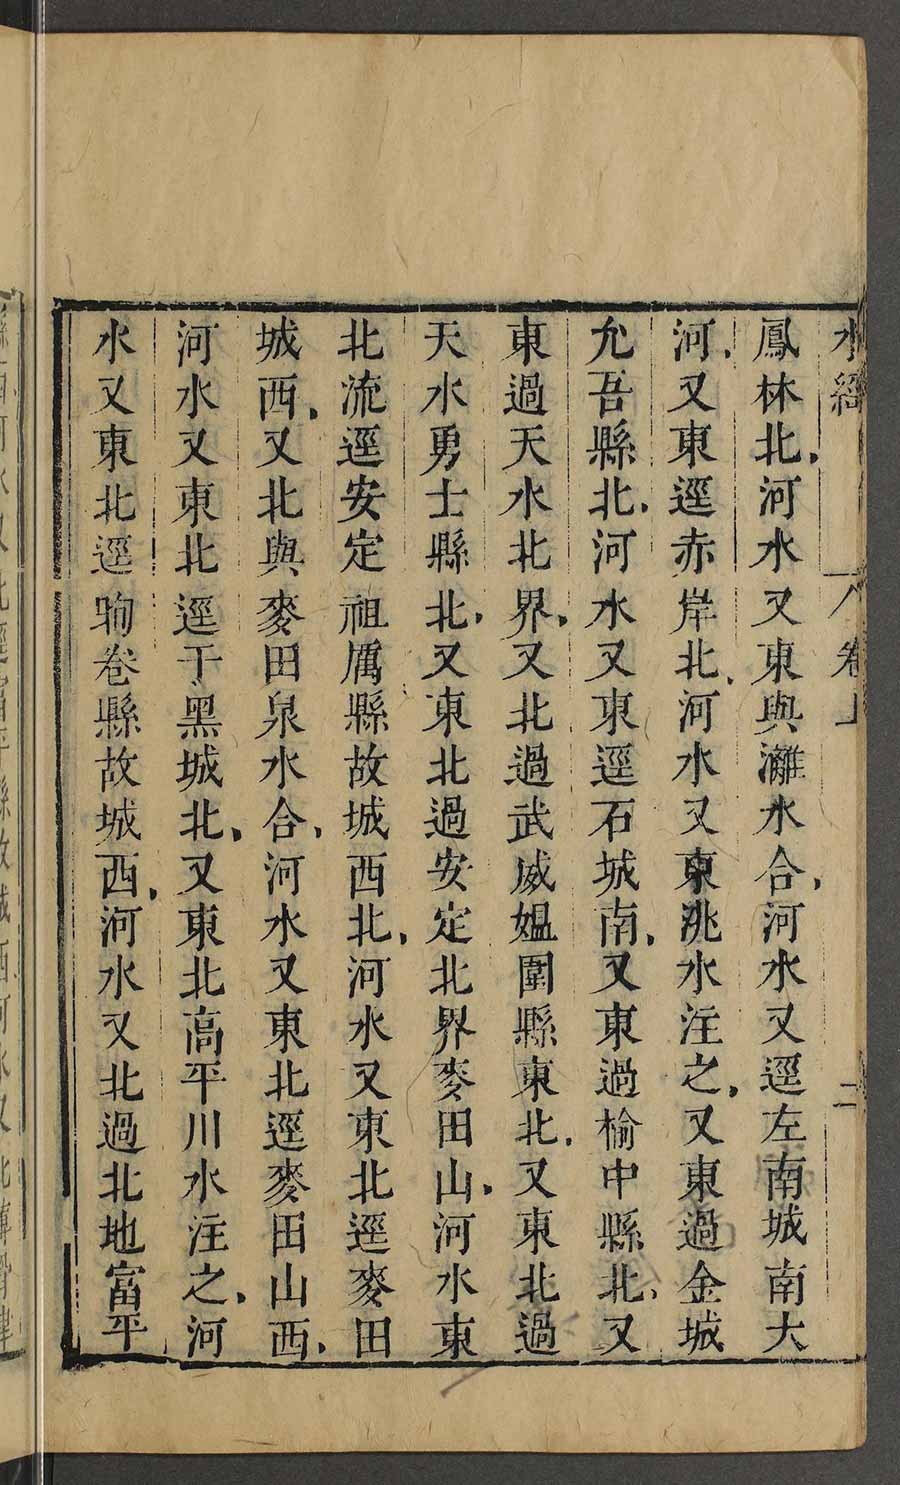 水經 卷上 二
鳳林北河水又東與灕水合河水又逕左南城南大
河又東逕赤岸北河水又東洮水注之又東過金城
允吾縣北河水又東逕石城南又東過榆中縣北又
東過天水北界又北過武威媼圍縣東北又東北過
天水勇士縣北又東北過安定北界麥田山河水東
北流逕安定祖厲縣故城西北河水又東北逕麥田
城西又北與麥田泉水合河水又東北逕麥田山西
河水又東北逕于黑城北又東北高平川水注之河
水又東北逕眴卷縣故城西河水又北過北地富平